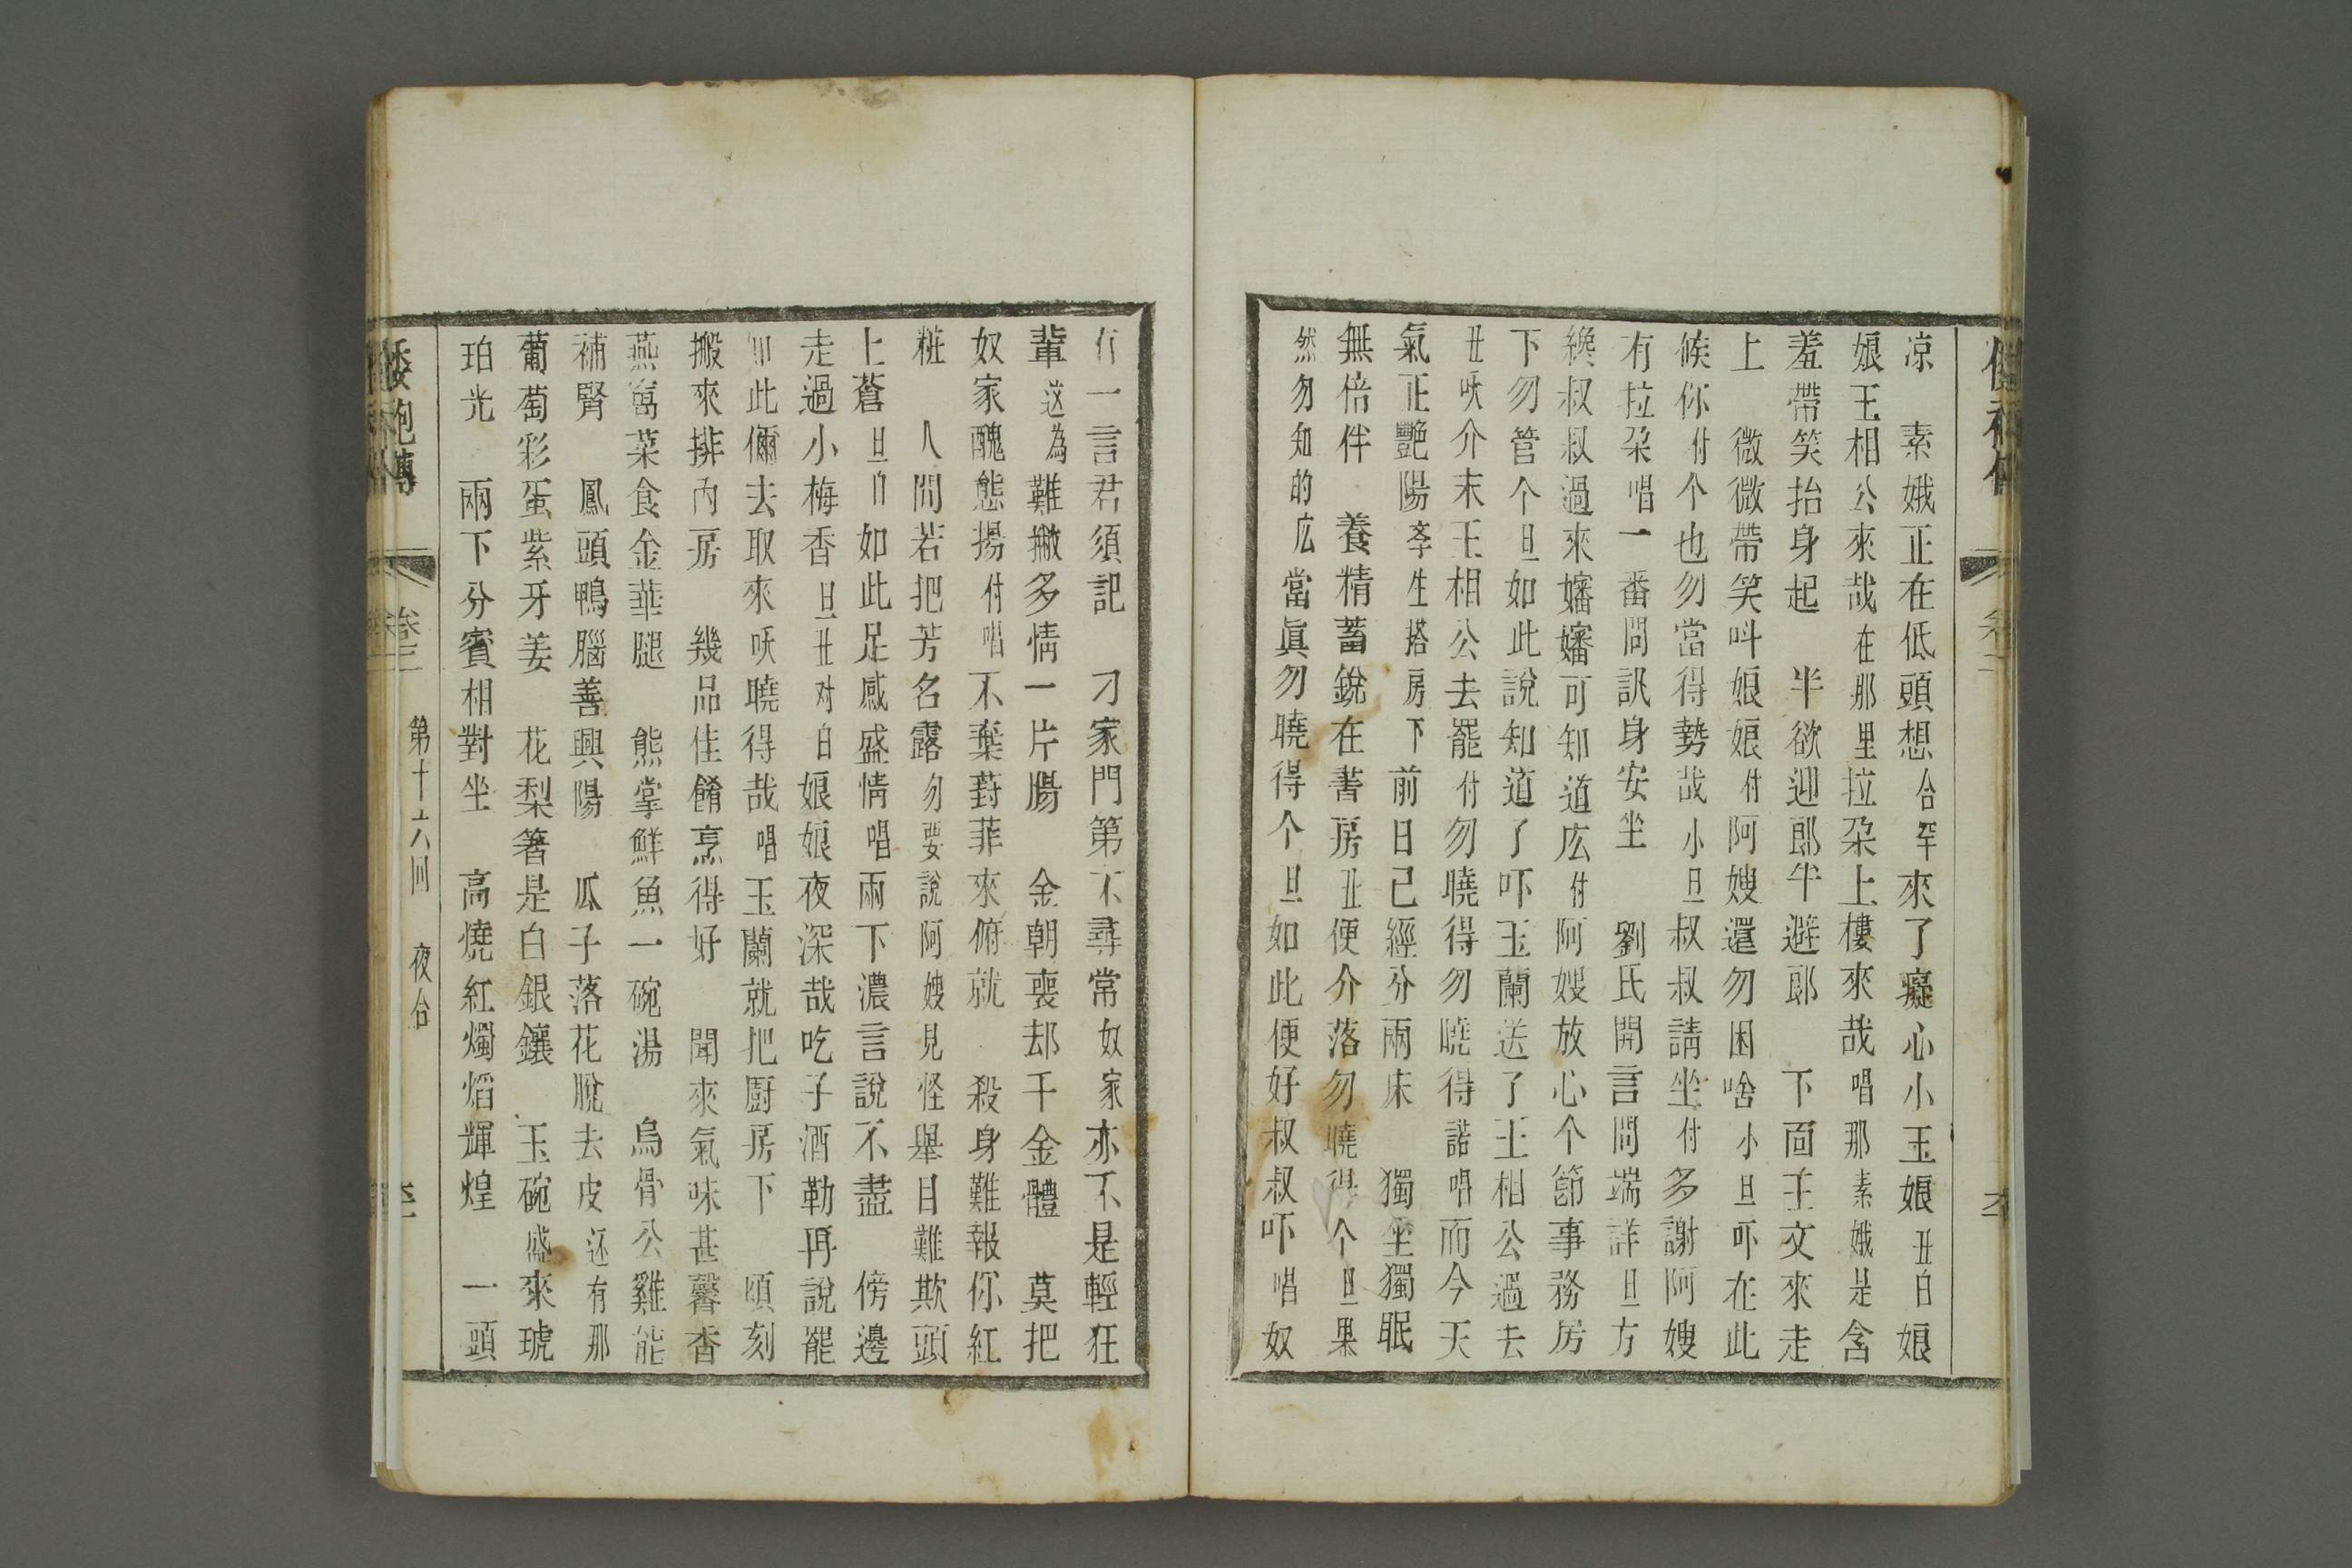 凉　素娥正在低頭想合罕來了癡心小玉娘丑白娘
娘王相公來哉在那里拉朶上樓來哉唱那素娥是含
羞帶笑抬身起　半欲迎郎半避郎　下面王文來走
上　微微帶笑呌娘娘付阿嫂還勿困啥小旦吓在此
候你付个也勿當得勢哉小旦叔叔請坐付多謝阿嫂
有拉朶唱一番問訊身安坐　劉氏開言問端詳旦方
纔叔叔過來嬸嬸可知道庅付阿嫂放心个節事務房
下勿管个旦如此說知道了吓玉蘭送了王相公過去
丑吷介末王相公去罷付勿曉得勿曉得諾唱而今天
氣正艷陽李生搭房下　前日已經分兩床　獨坐獨眠
無倍伴　養精蓄銳在書房丑便介落勿曉得个旦果
然勿知的庅當眞勿曉得个旦如此便好叔叔吓唱奴
有一言君須記　刁家門第不尋常奴家亦不是輕狂
輩这為難撇多情一片腸　金朝喪却千金體　莫把
奴家醜態揚付唱不棄葑菲來俯就　殺身難報你紅
粧　人間若把芳名露勿要說阿嫂見怪舉目難欺頭
上蒼旦白如此足感盛情唱兩下濃言說不盡　傍邊
走過小梅香旦丑对白娘娘夜深哉吃子酒勒再說罷
如此儞去取來吷曉得哉唱玉蘭就把厨房下　頃刻
搬來排內房　幾品佳餚烹得好　聞來氣味甚馨香
燕窩菜食金華腿　熊掌鮮魚一碗湯　烏骨公雞能
補腎　鳳頭鴨腦善興陽　瓜子落花脫去皮还有那
葡萄彩蛋紫牙姜　花梨箸是白銀鑲　玉碗盛來琥
珀光　兩下分賓相對坐　高燒紅燭焰輝煌　一頭
倭袍傳　卷三　第十六回　夜合